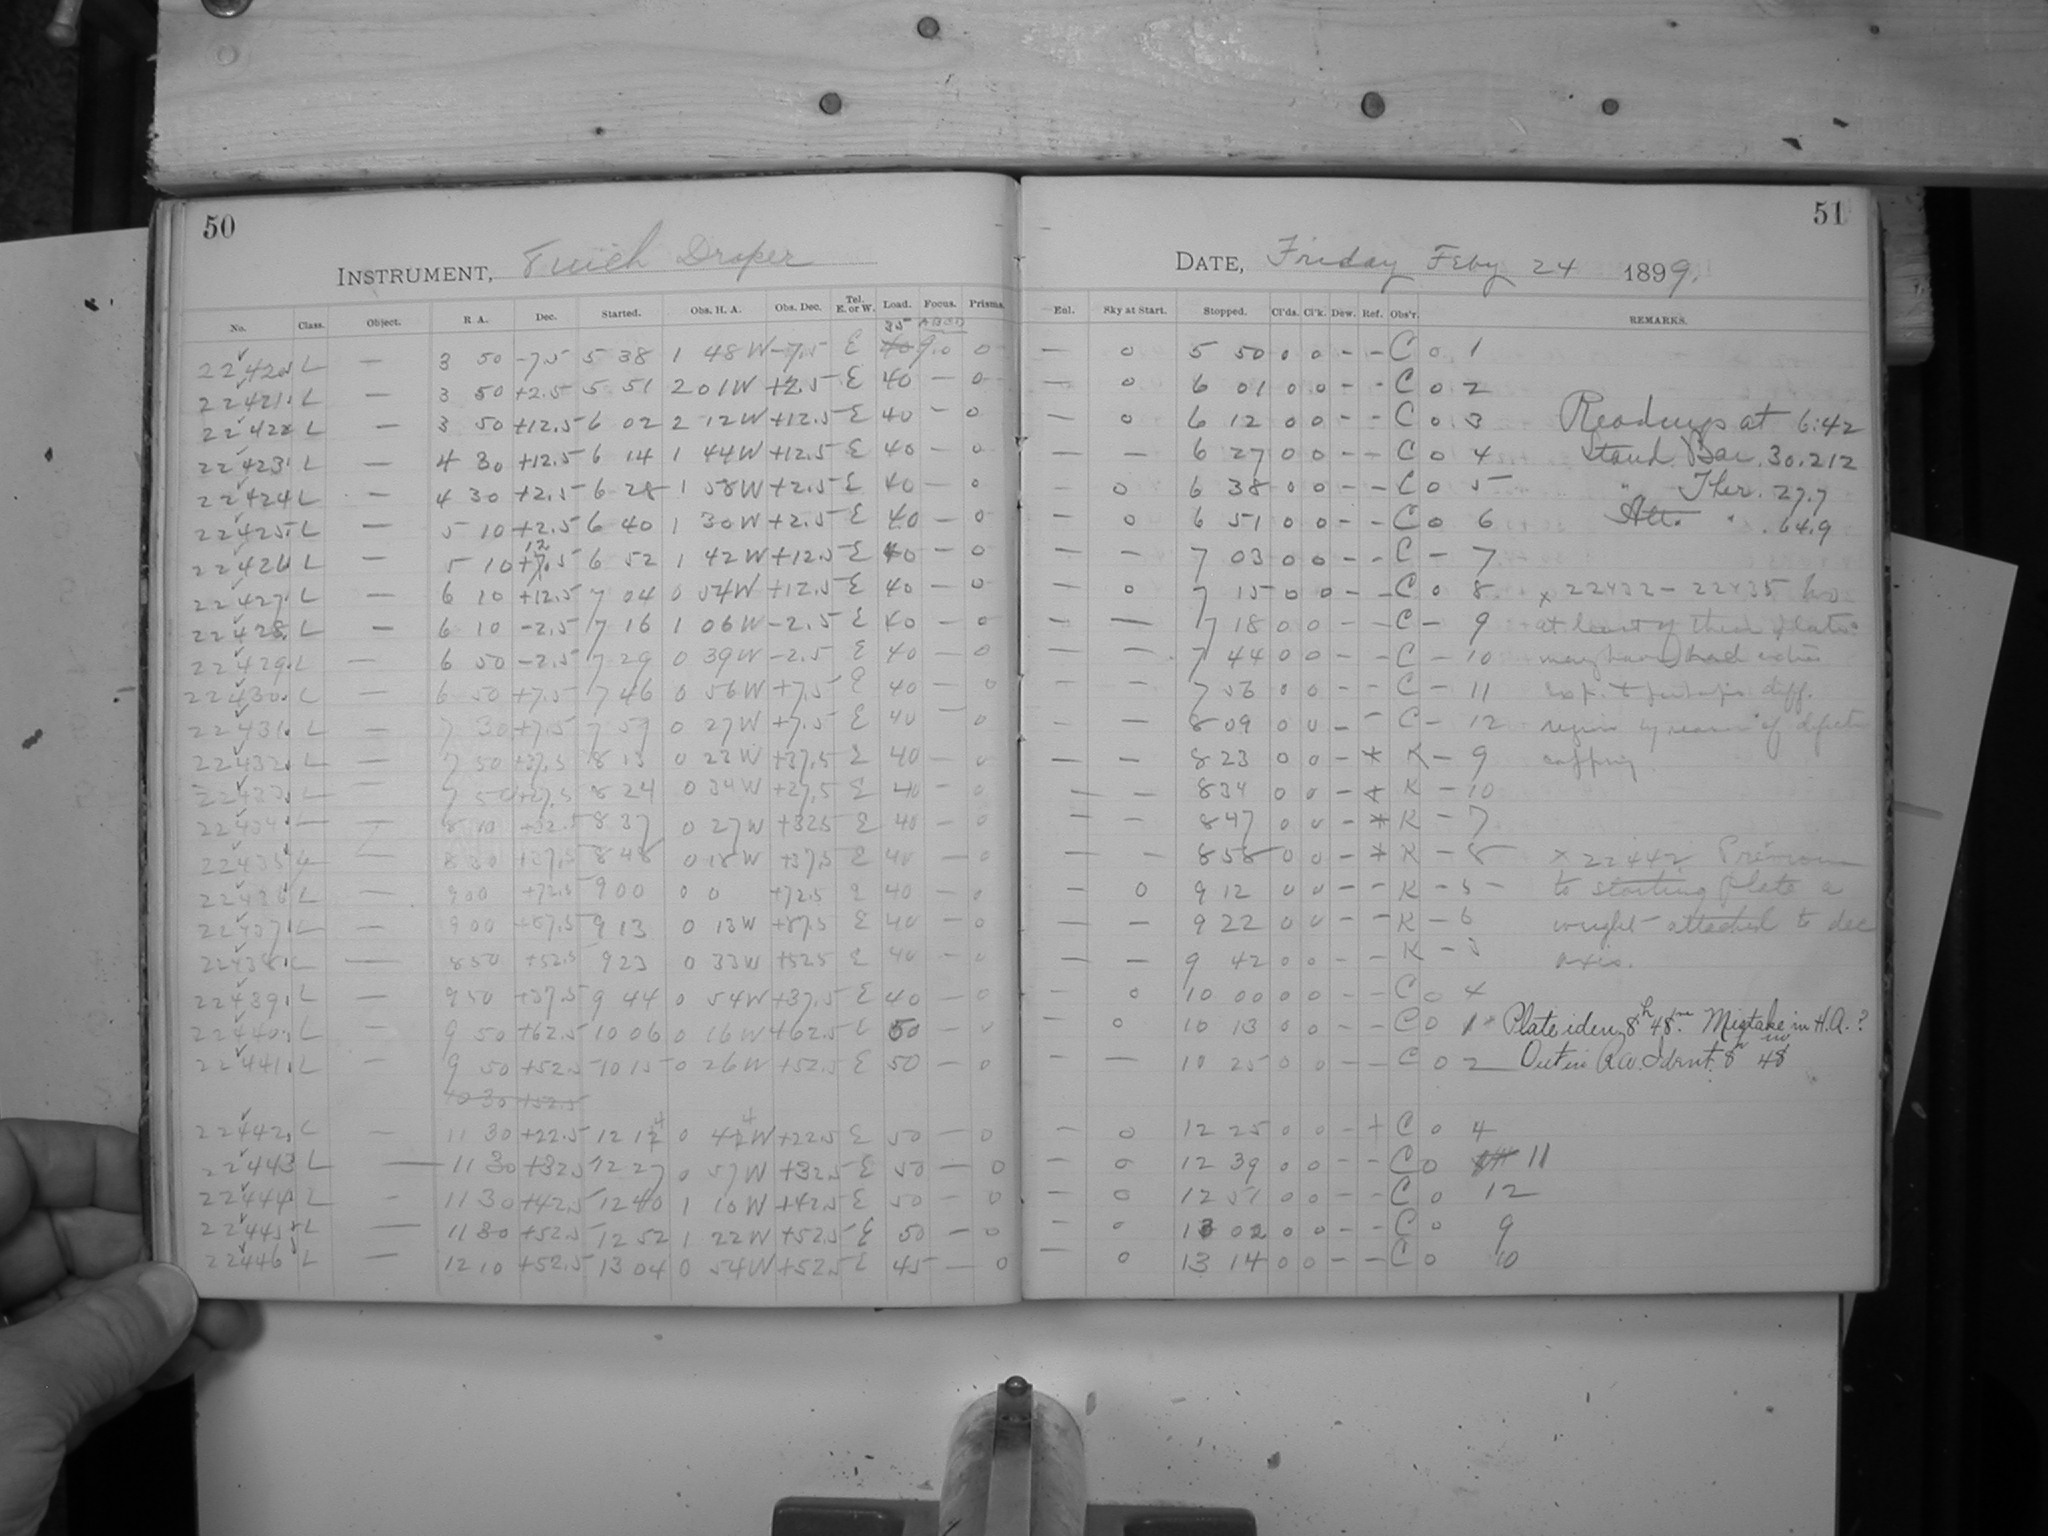 50
INSTRUMENT, 8 inch Draper
No. Class. Object. R A. Dec. Started. Obs. H. A. Obs. Dec. Tel. E. or W. Load. Focus. Prisms.
35
22420 L — 3 50 -7.5 5 38 1 48 W -7.5 E 40 9.0 0
22421. L — 3 50 +2.5 5 51 2 01 W +2.5 E 40 — 0
22422 L — 3 50 +12.5 6 02 2 12 W +12.5 E 40 — 0
22423 L — 4 30 +12.5 6 14 1 44 W +12.5 E 40 — 0
22424 L — 4 30 +2.5 6 28 1 58 W +2.5 E 40 — 0
22425 L — 5 10 +2.5 6 40 1 30 W +2.5 E 40 — 0
22426 L — 5 10 +12.5 6 52 1 42 W +12.5 E 40 — 0
22427 L — 6 10 +12.5 7 04 0 54 W +12.5 E 40 — 0
22428. L — 6 10 -2.5 7 16 1 06 W -2.5 E 40 — 0
22429. L — 6 50 -2.5 7 29 0 39 W -2.5 E 40 — 0
22430. L — 6 50 +7.5 7 46 0 56 W +7.5 E 40 — 0
22431. L — 7 30 +7.5 7 59 0 27 W +7.5 E 40 — 0
22432. L — 7 50 +37.5 8 13 0 23 W +37.5 E 40 — 0
22433. L — 7 50 +27.5 8 24 0 34 W +27.5 E 40 — 0
22434 L — 8 10 +32.5 8 37 0 27 W +32.5 E 40 — 0
22435 L — 8 30 +37.5 8 48 0 18 W +37.5 E 40 — 0
22436 L — 9 00 +72.5 9 00 0 0 +72.5 E 40 — 0
22437 L — 9 00 +87.5 9 13 0 13 W +87.5 E 40 — 0
22438. L — 8 50 +52.5 9 23 0 33 W +52.5 E 40 — 0
22439. L — 9 50 +37.5 9 44 0 54 W +37.5 E 40 — 0
22440. L — 9 50 +62.5 10 06 0 16 W +62.5 E 50 — 0
22441. L — 9 50 +52.5 10 15 0 26 W +52.5 E 50 — 0
10 30 +52.5
22442. L — 11 30 +22.5 12 14 0 44 W +22.5 E 50 — 0
22443 L — 11 30 +32.5 12 27 0 57 W +32.5 E 50 — 0
22444 L — 11 30 +42.5 12 40 1 10 W +42.5 E 50 — 0
22445 L — 11 30 +52.5 12 52 1 22 W +52.5 E 50 — 0
22446 L — 12 10 +52.5 13 04 0 54 W +52.5 E 45 — 0
51
DATE, Friday Feby 24 1899.
Enl. Sky at Start. Stopped. Cl'ds. Cl'k. Dew. Ref. Obs'r. REMARKS.
— 0 5 50 0 0 — — C 0 1
— 0 6 01 0 0 — — C 0 2
— 0 6 12 0 0 — — C 0 3 Readings at 6:42
— — 6 27 0 0 — — C 0 4 Stand. Bar. 30.212
— 0 6 38 0 0 — — C 0 5 " Ther. 27.7
— 0 6 51 0 0 — — C 0 6 Att. " . 64.9
— — 7 03 0 0 — — C — 7
— 0 7 15 0 0 — — C 0 8 x 22432 — 22435 two
— — 7 18 0 0 — — C — 9 at least of these plates
— — 7 44 0 0 — — C — 10 may have had extra
— — 7 56 0 0 — — C — 11 exp. & perhaps diff.
— — 8 09 0 0 — — C — 12 region by reason of defective
— — 8 23 0 0 — * K — 9 capping
— — 8 34 0 0 — * K — 10
— — 8 47 0 0 — * K — 7
— — 8 58 0 0 — * K — 8 x 22442 Previous
— 0 9 12 0 0 — — K — 5 to starting plate a
— — 9 22 0 0 — — K — 6 weight attached to dec
— — 9 42 0 0 — — K — 3 axis.
— 0 10 00 0 0 — — C 0 4
— 0 10 13 0 0 — — C 0 1 Plate iden. 8h 48m. Mistake in H.A.?
— — 10 25 0 0 — — C 0 2 Out in R.A. Ident. 8h 48m
— 0 12 25 0 0 — + C 0 4
— 0 12 39 0 0 — — C 0 11
— 0 12 51 0 0 — — C 0 12
— 0 13 02 0 0 — — C 0 9
— 0 13 14 0 0 — — C 0 10